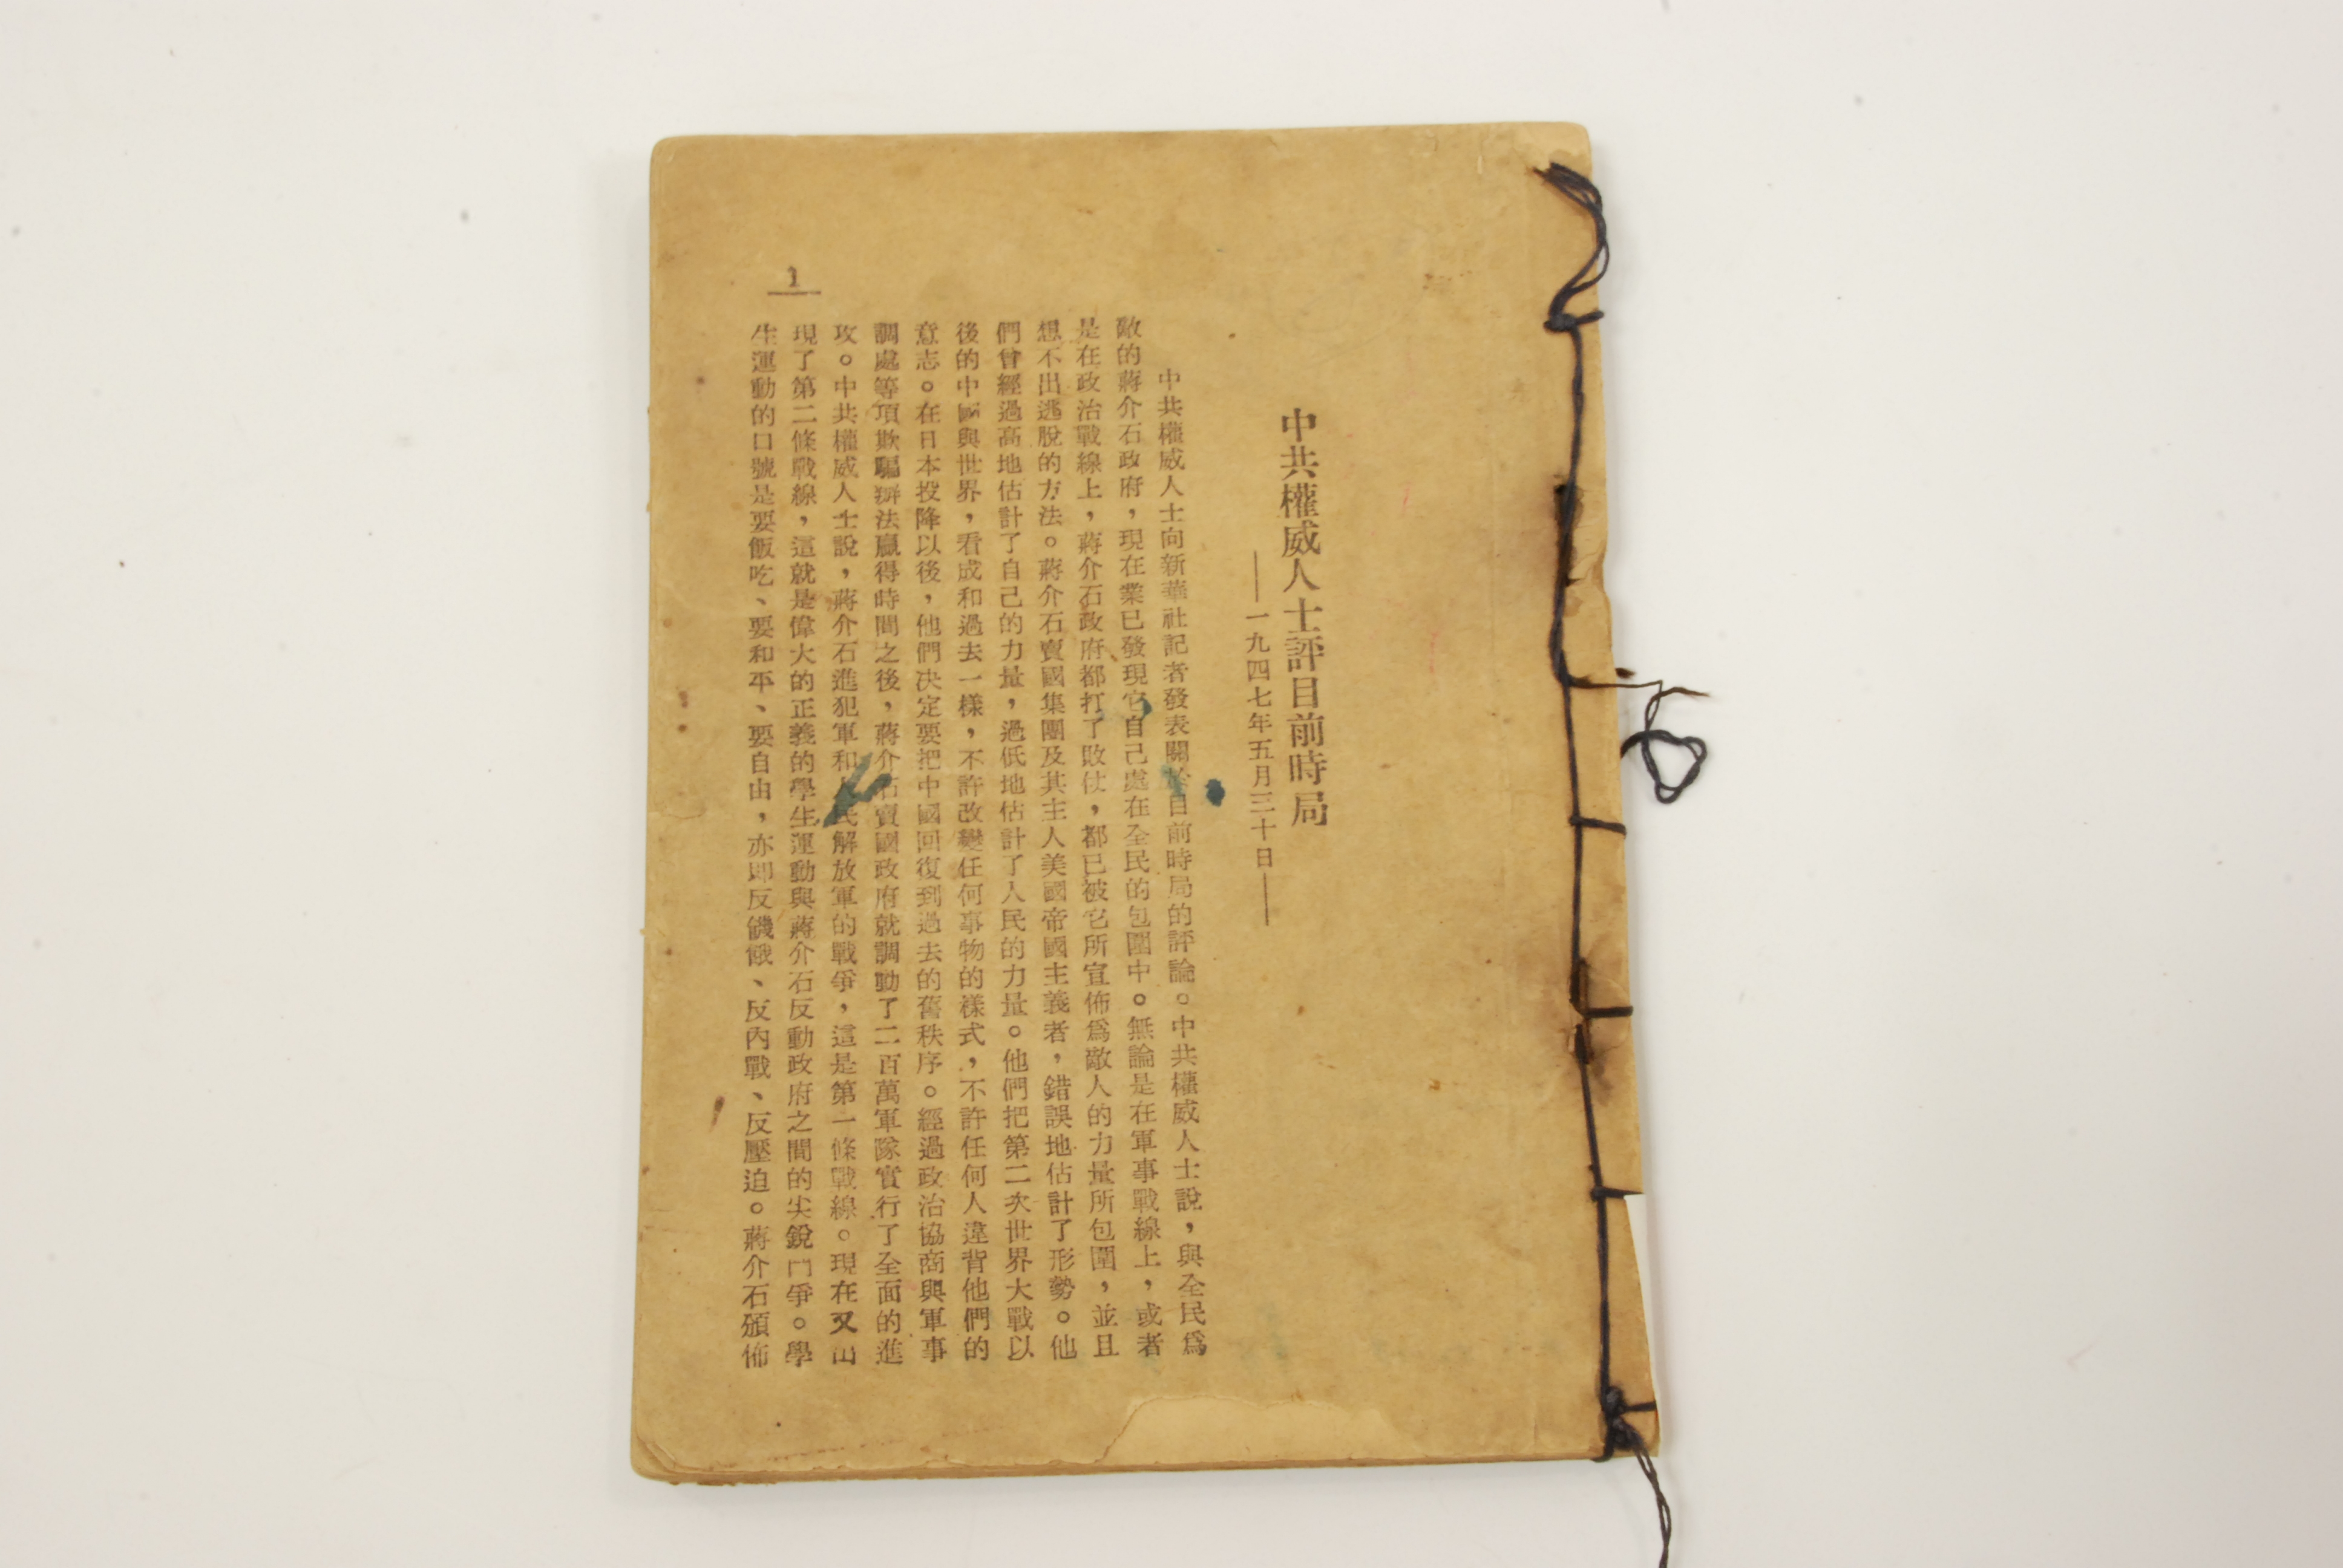 中共權威人士評目前時局
——一九四七年五月三十日——
中共權威人士向新華社記者發表關於目前時局的評論。中共權威人士說，與全民爲
敵的蔣介石政府，現在業已發現它自己處在全民的包圍中。無論是在軍事戰線上，或者
是在政治戰線上，蔣介石政府都打了敗仗，都已被它所宣佈爲敵人的力量所包圍，並且
想不出逃脫的方法。蔣介石賣國集團及其主人美國帝國主義者，錯誤地估計了形勢。他
們曾經過高地估計了自己的力量，過低地估計了人民的力量。他們把第二次世界大戰以
後的中國與世界，看成和過去一樣，不許改變任何事物的樣式，不許任何人違背他們的
意志。在日本投降以後，他們决定要把中國回復到過去的舊秩序。經過政治協商與軍事
調處等項欺騙辦法贏得時間之後，蔣介石賣國政府就調動了二百萬軍隊實行了全面的進
攻。中共權威人士說，蔣介石進犯軍和人民解放軍的戰爭，這是第一條戰線。現在又出
現了第二條戰線，這就是偉大的正義的學生運動與蔣介石反動政府之間的尖銳鬥爭。學
生運動的口號是要飯吃、要和平、要自由，亦即反饑餓、反內戰、反壓迫。蔣介石頒佈
1